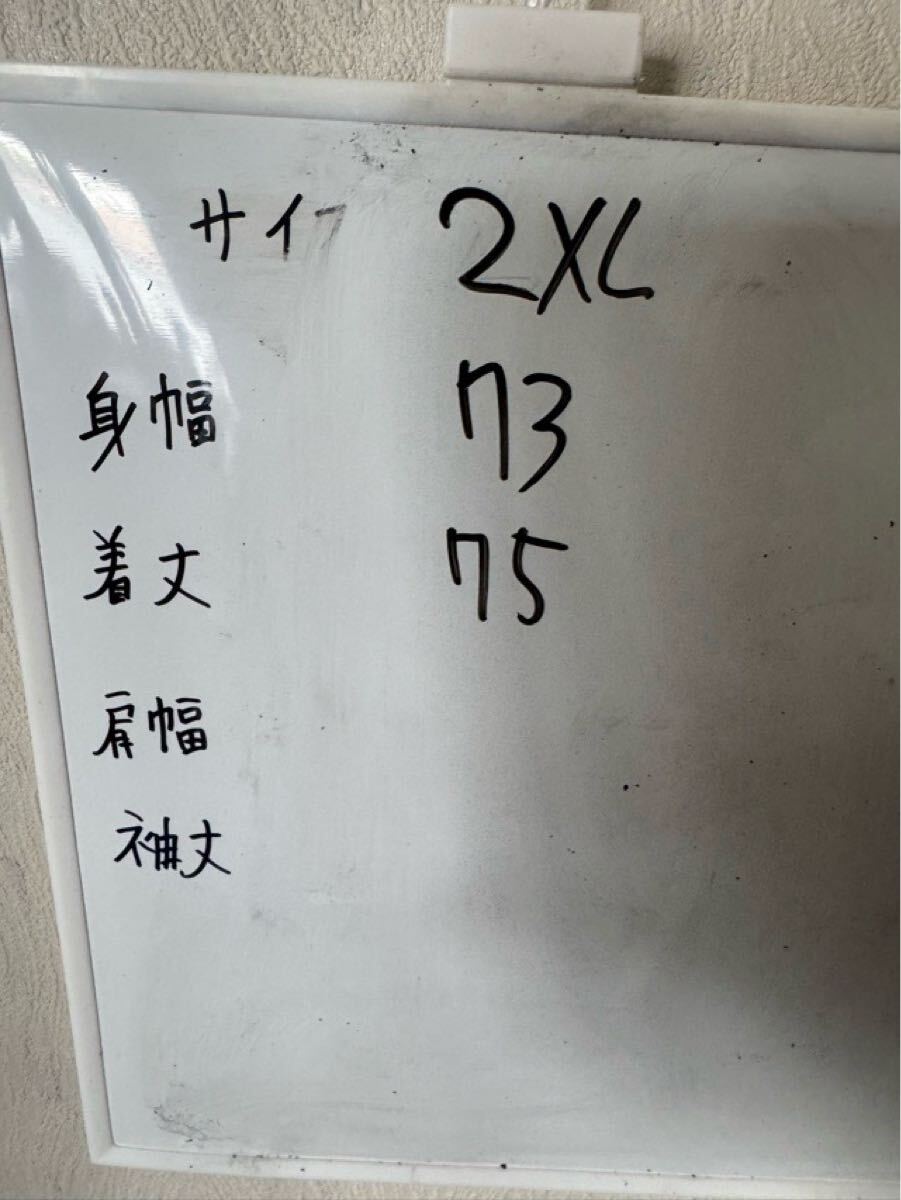 サイ 2XL
身幅 73
着丈 75
肩幅
袖丈